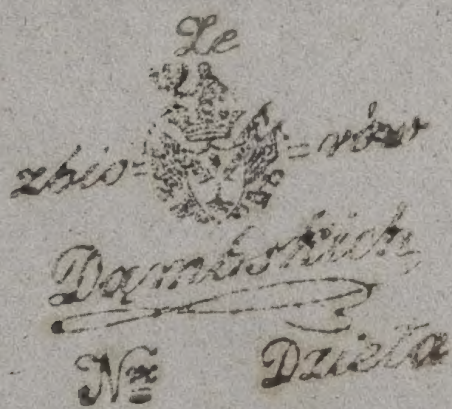 Ze
zbio= =rów
Dąmbskich
Nr Dzieła